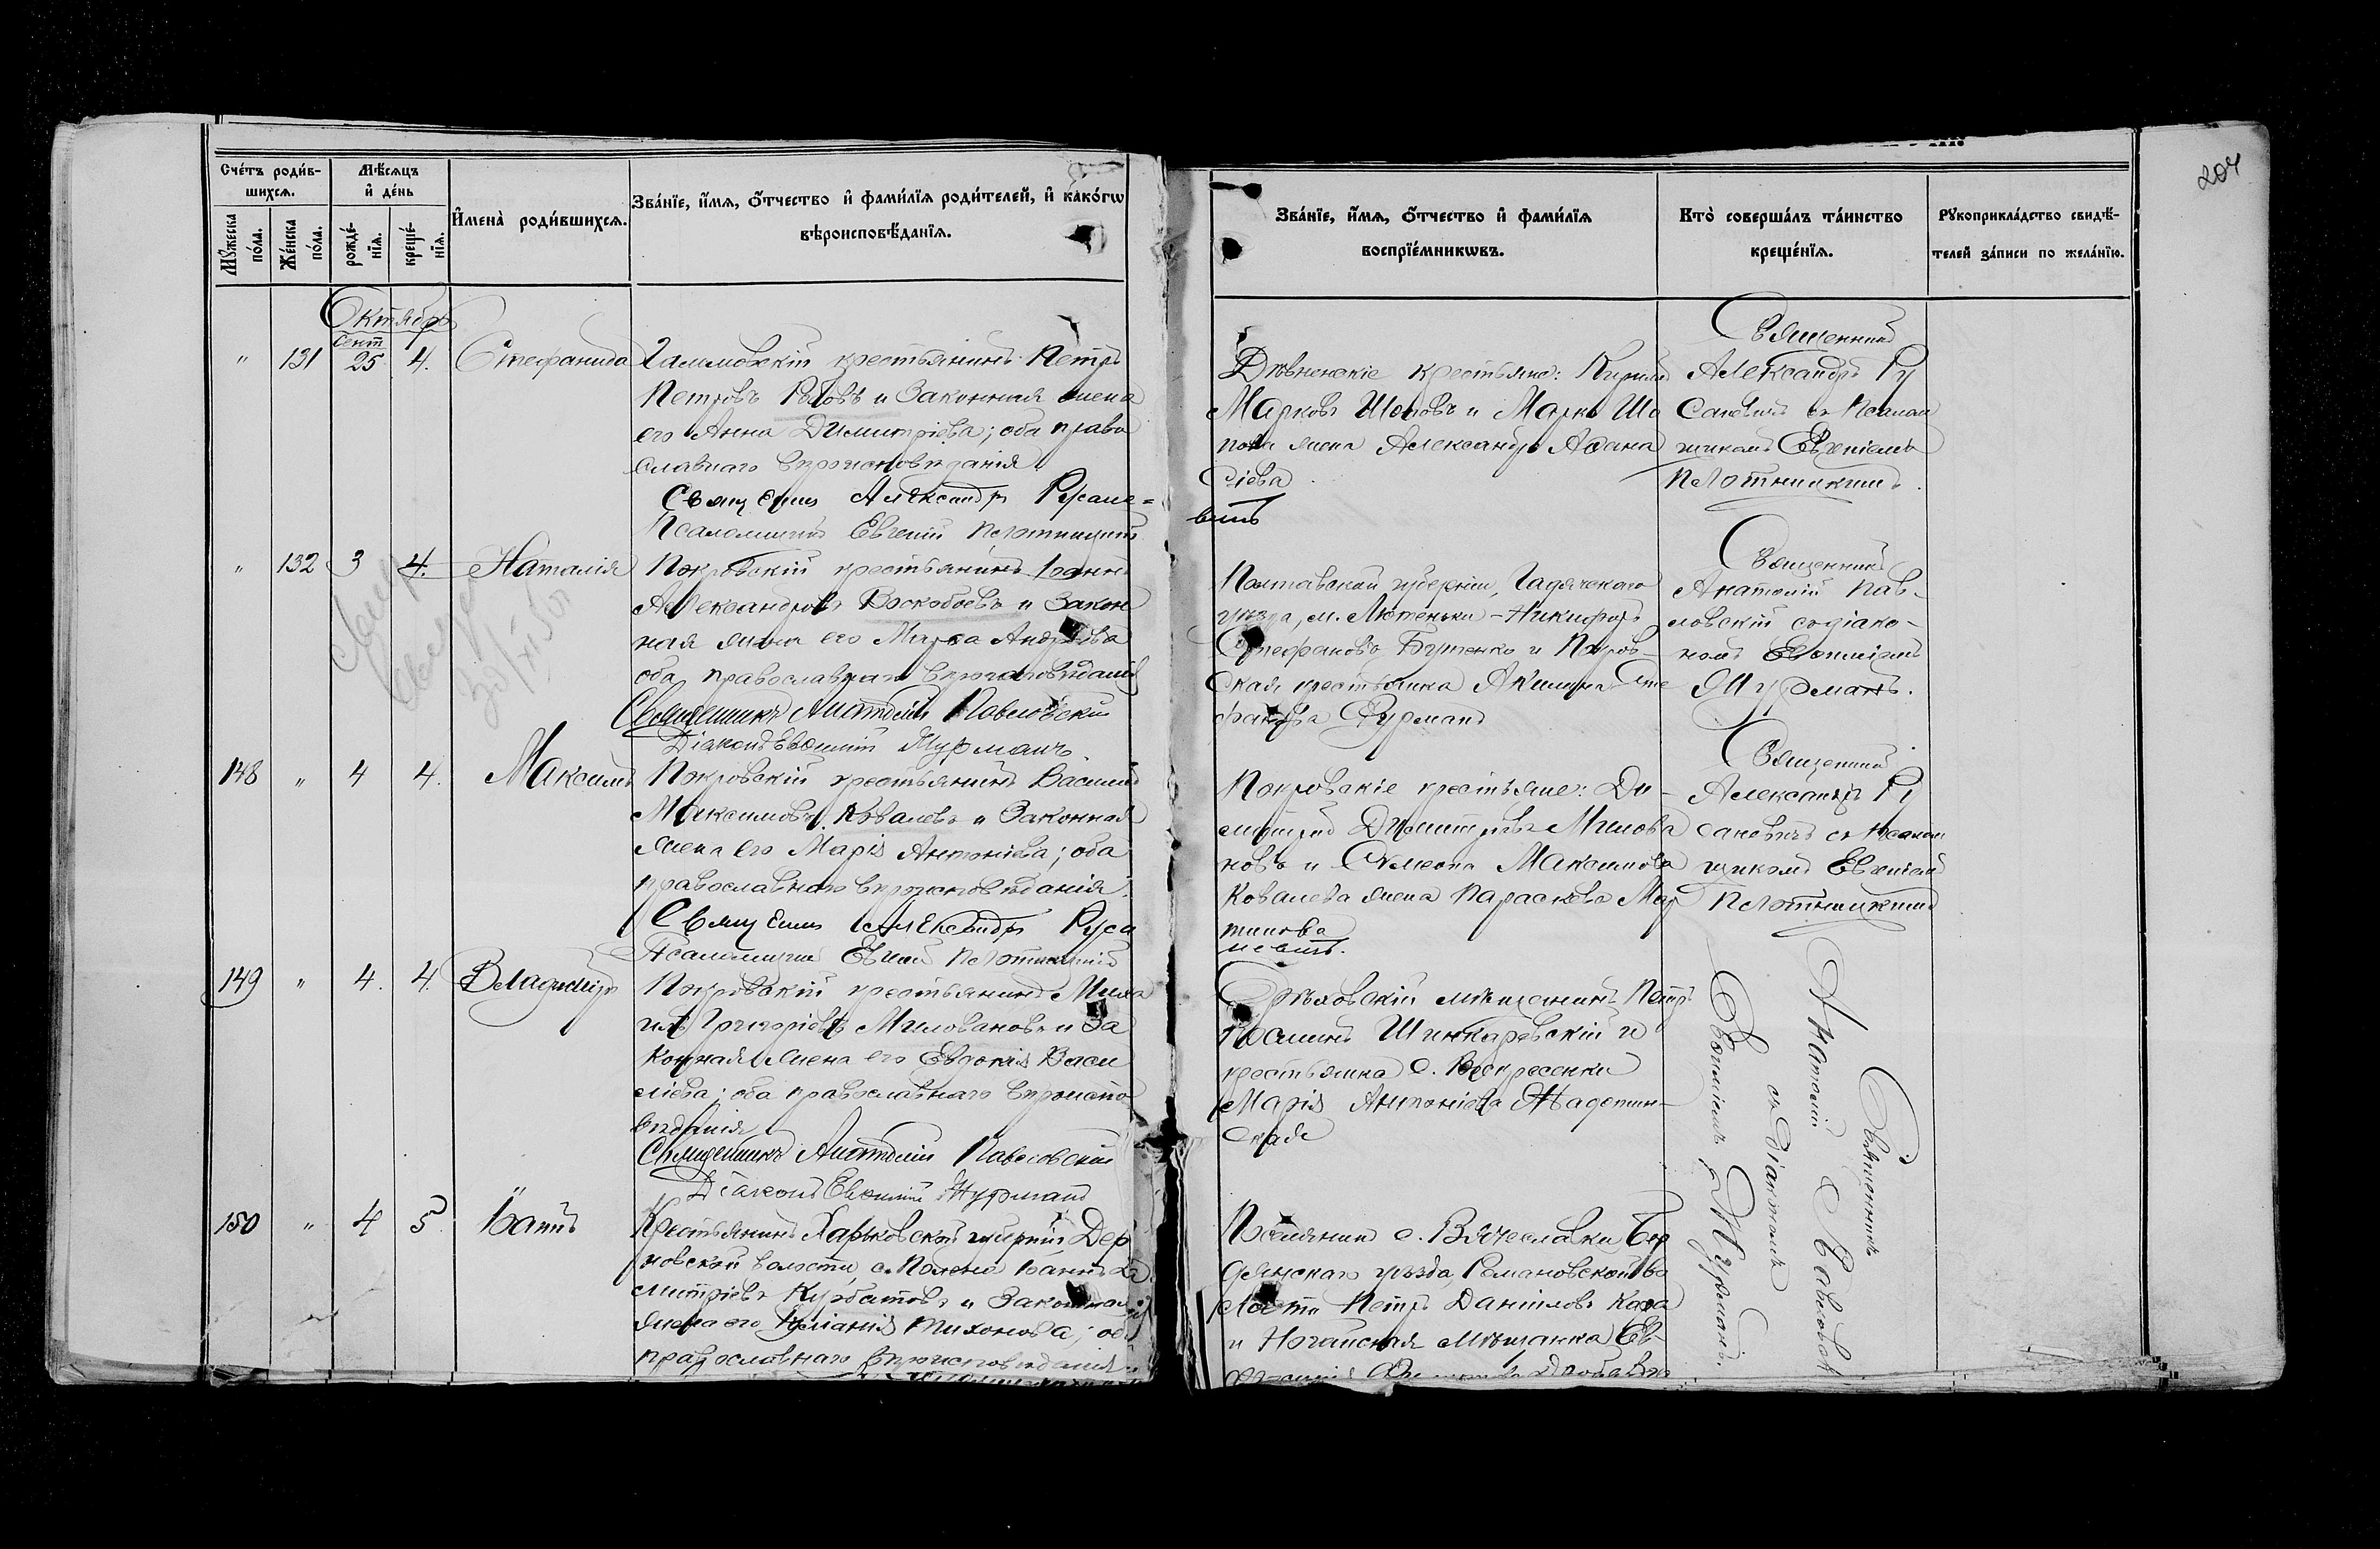 204
Сче́тъ роди́в-
шихся.
Мѣ́сяцъ
и҆ де́нь
Мꙋ́жеска
по́ла.
Же́нска
по́ла.
рожде́-
нїѧ.
креще́-
нїѧ.
И҆мена̀ роди́вшихсѧ.
Зва́нїе, и҆́мѧ, ѻ҆́тчество и҆ фами́лїѧ роди́телей, и҆ како́гѡ
вѣроисповѣ́данїѧ.
Зва́нїе, и҆́мѧ, ѻ҆́тчество и҆ фами́лїѧ
воспрїе́мникѡвъ.
Кто̀ соверша́лъ та́инство
креще́нїѧ.
Рꙋкоприкла́дство свидѣ́-
телей за́писи по жела́нїю.
Октябрь
Сент
" 131 25 4. Стефанида
крестьянинъ Петръ
Петровъ и Законная жена
его Анна Димитріева; оба право
славнаго вѣроисповѣданія
Священ Александръ Русане-
вичъ
Псаломщикъ Евгеній Плотницкій
крестьяне: Кириллъ
Марковъ Шоповъ и Марка Шо
пова жена Александра Афана
сіева
Священникъ
Александръ Ру
сановичъ съ Псалом
щикомъ Евгеніемъ
Плотницкимъ.
" 132 3 4. Наталія
Покровскій крестьянинъ Іоаннъ
Александровъ Воскобоевъ и Закон
ная жена его Марѳа Андреева
оба православнаго вѣроисповѣданія
Священникъ Анатолій Павловскій
Діаконъ Евѳимій Журманъ.
Полтавской губерніи, Гадячскаго
уѣзда, м. Лютеньки - Никифоръ
Стефановъ Бутенко и Покров-
ская крестьянка Акилина Сте
фанова Фурманъ
Священникъ
Анатолій Пав-
ловскій съ діако-
номъ Евѳиміемъ
Журманъ.
148 " 4 4. Максимъ
Покровскій крестьянинъ Василій
Максимовъ Ковалевъ и Законная
жена его Марія Антоніева; оба
православнаго вѣроисповѣданія.
Священ Александръ Руса
новичъ.
Псаломщикъ Евгеній Плотницкій
Покровскіе крестьяне: Ди-
митрій Димитріевъ Милова
новъ и Симеона Максимова
Ковалева жена Параскева Мар
тинова
Священникъ
Александръ Ру
сановичъ съ Псалом
щикомъ Евгеніемъ
Плотницкимъ
149 " 4. 4. Владиміръ
Покровскій крестьянинъ Миха
илъ Григоріевъ Миловановъ и За
конная жена его Евдокія Васи
ліева; оба православнаго вѣроиспо
вѣданія
Священникъ Анатолій Павловскій
Діаконъ Евѳимій Журманъ
Орѣховскій мѣщанинъ Петръ
Шинкаревскій и
крестьянка с. Воскресенки
Марія Антоніева
ская
Священникъ
Анатолій Павловск
съ Діакономъ
Евѳиміемъ Журманъ.
150 " 4 5 Іоаннъ
Крестьянинъ Харьковской губерніи Дер
новской волости, с. Іоаннъ Ди
митріевъ Курбатовъ и Законная
жена его Іуліанія Тихонова; оба
православнаго вѣроисповѣданія
Поселянинъ с. Вячеславки Бер
дянскаго уѣзда, Романовской во
лости Петръ Даніиловъ Кара
и Ногайская мѣщанка Ев-